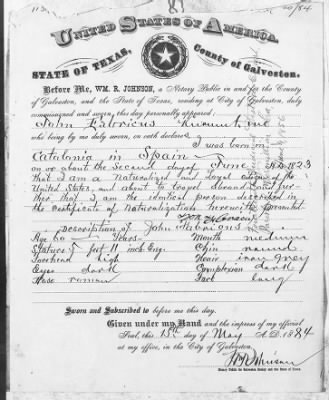 84
UNITED STATES OF AMERICA.
STATE OF TEXAS,
County of Galveston.
Before Me, WM. R. JOHNSON, a Notary Public in and for the County
of Galveston, and the State of Texas, residing at City of Galveston, duly
commissioned and sworn, this day personally appeared
John Fabricus
who being by me duly sworn, on oath declares
I was born in
Catalonia in Spain
on or about the Second day of June A.D. 1823
that I am a Naturalized and Loyal Citizen of the
United States, and about to travel abroad and further
that I am the identical person described in
the Certificate of Naturalization herewith
Description of John Fabricus
Age 60 Years Mouth medium
Stature 5 feet 11 inch Eng. Chin round
Forehead high Hair iron grey
Eyes dark Complexion dark
Nose roman Face long
Sworn and Subscribed to before me this day.
Given under my Hand and the impress of my official
Seal, this 13th day of May A. D. 1884
at my office, in the City of Galveston.
Notary Public for Galveston County and the State of Texas.